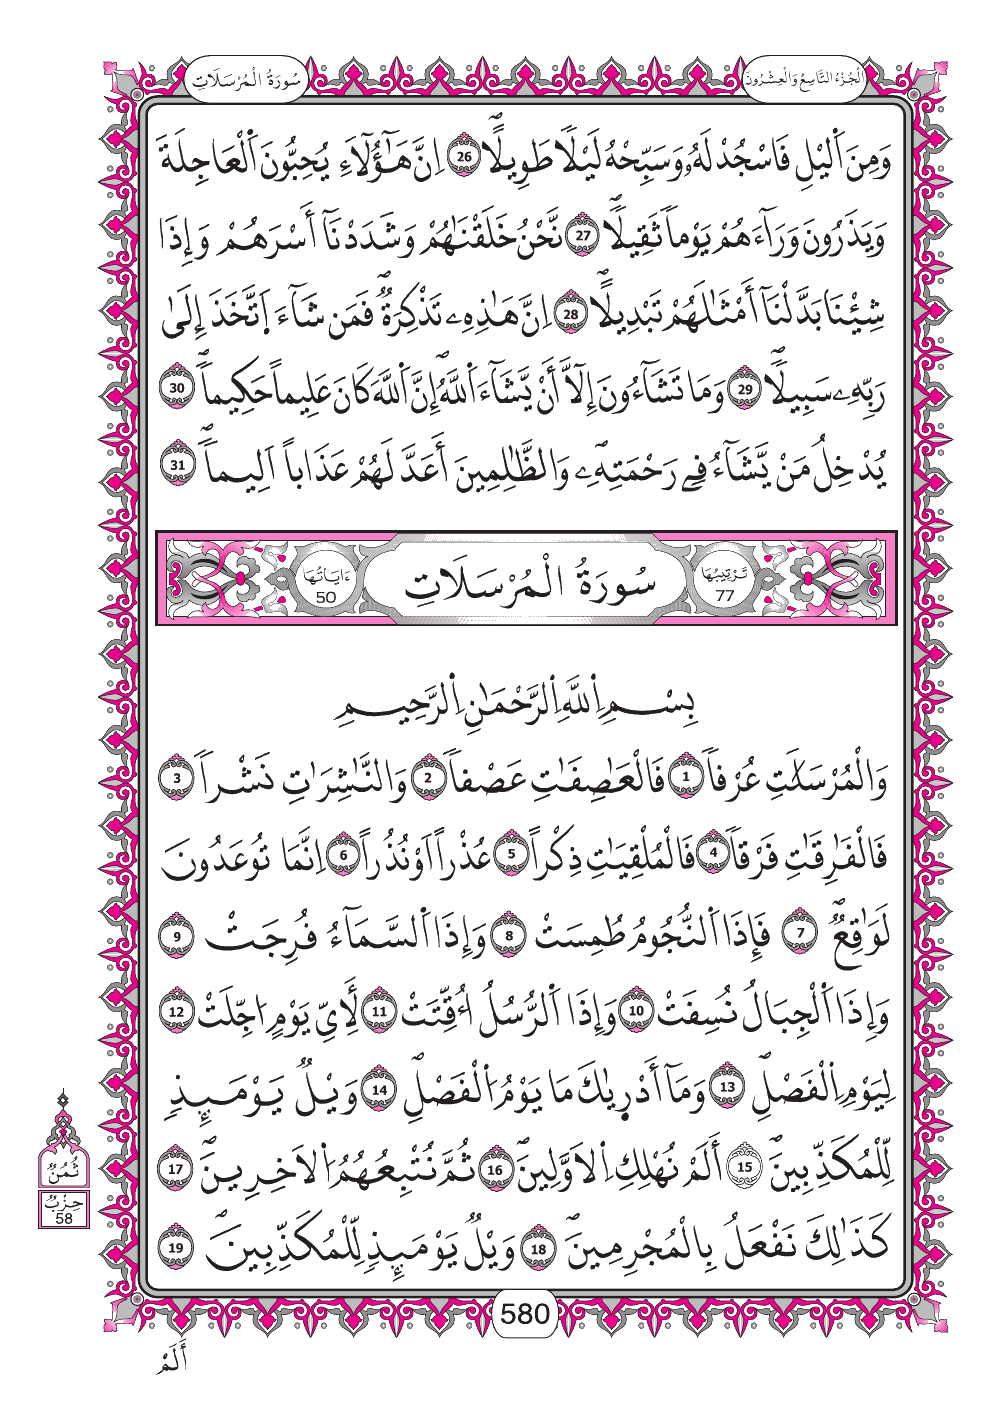 سُورَةُ الْمُرْسَلَاتِ
الْجُزْءُ التَّاسِعُ وَالْعِشْرُونَ
وَمِنَ اَ۬لَّيْلِ فَاسْجُدْ لَهُۥ وَسَبِّحْهُ لَيْلًا طَوِيلًاۖ 26 اِنَّ هَٰٓؤُلَآءِ يُحِبُّونَ اَ۬لْعَاجِلَةَ
وَيَذَرُونَ وَرَآءَهُمْ يَوْماً ثَقِيلًاۖ 27 نَّحْنُ خَلَقْنَٰهُمْ وَشَدَدْنَآ أَسْرَهُمْ وَإِذَا
شِئْنَا بَدَّلْنَآ أَمْثَٰلَهُمْ تَبْدِيلًاۖ 28 اِنَّ هَٰذِهِۦ تَذْكِرَةٞۖ فَمَن شَآءَ اَ۪تَّخَذَ إِلَىٰ
رَبِّهِۦ سَبِيلًاۖ 29 وَمَا تَشَآءُونَ إِلَّآ أَنْ يَّشَآءَ اَ۬للَّهُۖ إِنَّ اَ۬للَّهَ كَانَ عَلِيماً حَكِيماًۖ 30
يُدْخِلُ مَنْ يَّشَآءُ فِے رَحْمَتِهِۦۖ وَالظَّٰلِمِينَ أَعَدَّ لَهُمْ عَذَاباً اَلِيماًۖ 31
سُورَةُ الْمُرْسَلَاتِ
تَرْتِيبُهَا 77
ءَايَاتُهَا 50
بِسْمِ اِ۬للَّهِ اِ۬لرَّحْمَٰنِ اِ۬لرَّحِيمِ
وَالْمُرْسَلَٰتِ عُرْفاً 1 فَالْعَٰصِفَٰتِ عَصْفاً 2 وَالنَّٰشِرَٰتِ نَشْراً 3
فَالْفَٰرِقَٰتِ فَرْقاً 4 فَالْمُلْقِيَٰتِ ذِكْراً 5 عُذْراً اَوْ نُذُراً 6 اِنَّمَا تُوعَدُونَ
لَوَٰقِعٞۖ 7 فَإِذَا اَ۬لنُّجُومُ طُمِسَتْ 8 وَإِذَا اَ۬لسَّمَآءُ فُرِجَتْ 9
وَإِذَا اَ۬لْجِبَالُ نُسِفَتْ 10 وَإِذَا اَ۬لرُّسُلُ أُقِّتَتْ 11 لِأَيِّ يَوْمٍ اُجِّلَتْ 12
لِيَوْمِ اِ۬لْفَصْلِۖ 13 وَمَآ أَدْر۪يٰكَ مَا يَوْمُ اُ۬لْفَصْلِۖ 14 وَيْلٞ يَوْمَئِذٖ
لِّلْمُكَذِّبِينَۖ 15 أَلَمْ نُهْلِكِ اِ۬لَاوَّلِينَۖ 16 ثُمَّ نُتْبِعُهُمُ اُ۬لَاخِرِينَۖ 17
كَذَٰلِكَ نَفْعَلُ بِالْمُجْرِمِينَۖ 18 وَيْلٞ يَوْمَئِذٖ لِّلْمُكَذِّبِينَۖ 19
ثُمُنٌ
حِزْبٌ
58
580
أَلَمْ